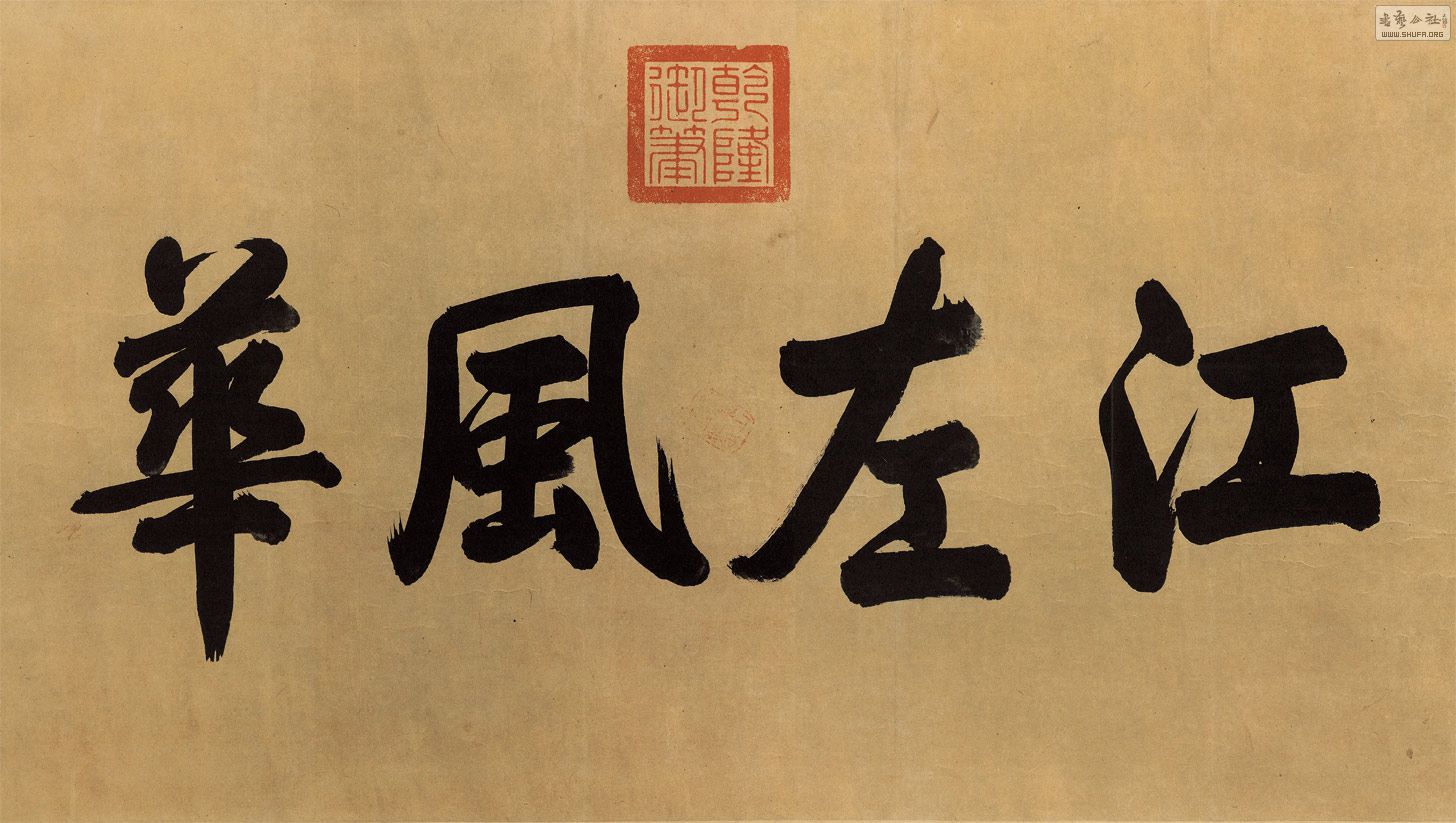 江左風華
乾隆御筆
書藝公社
WWW.SHUFA.ORG